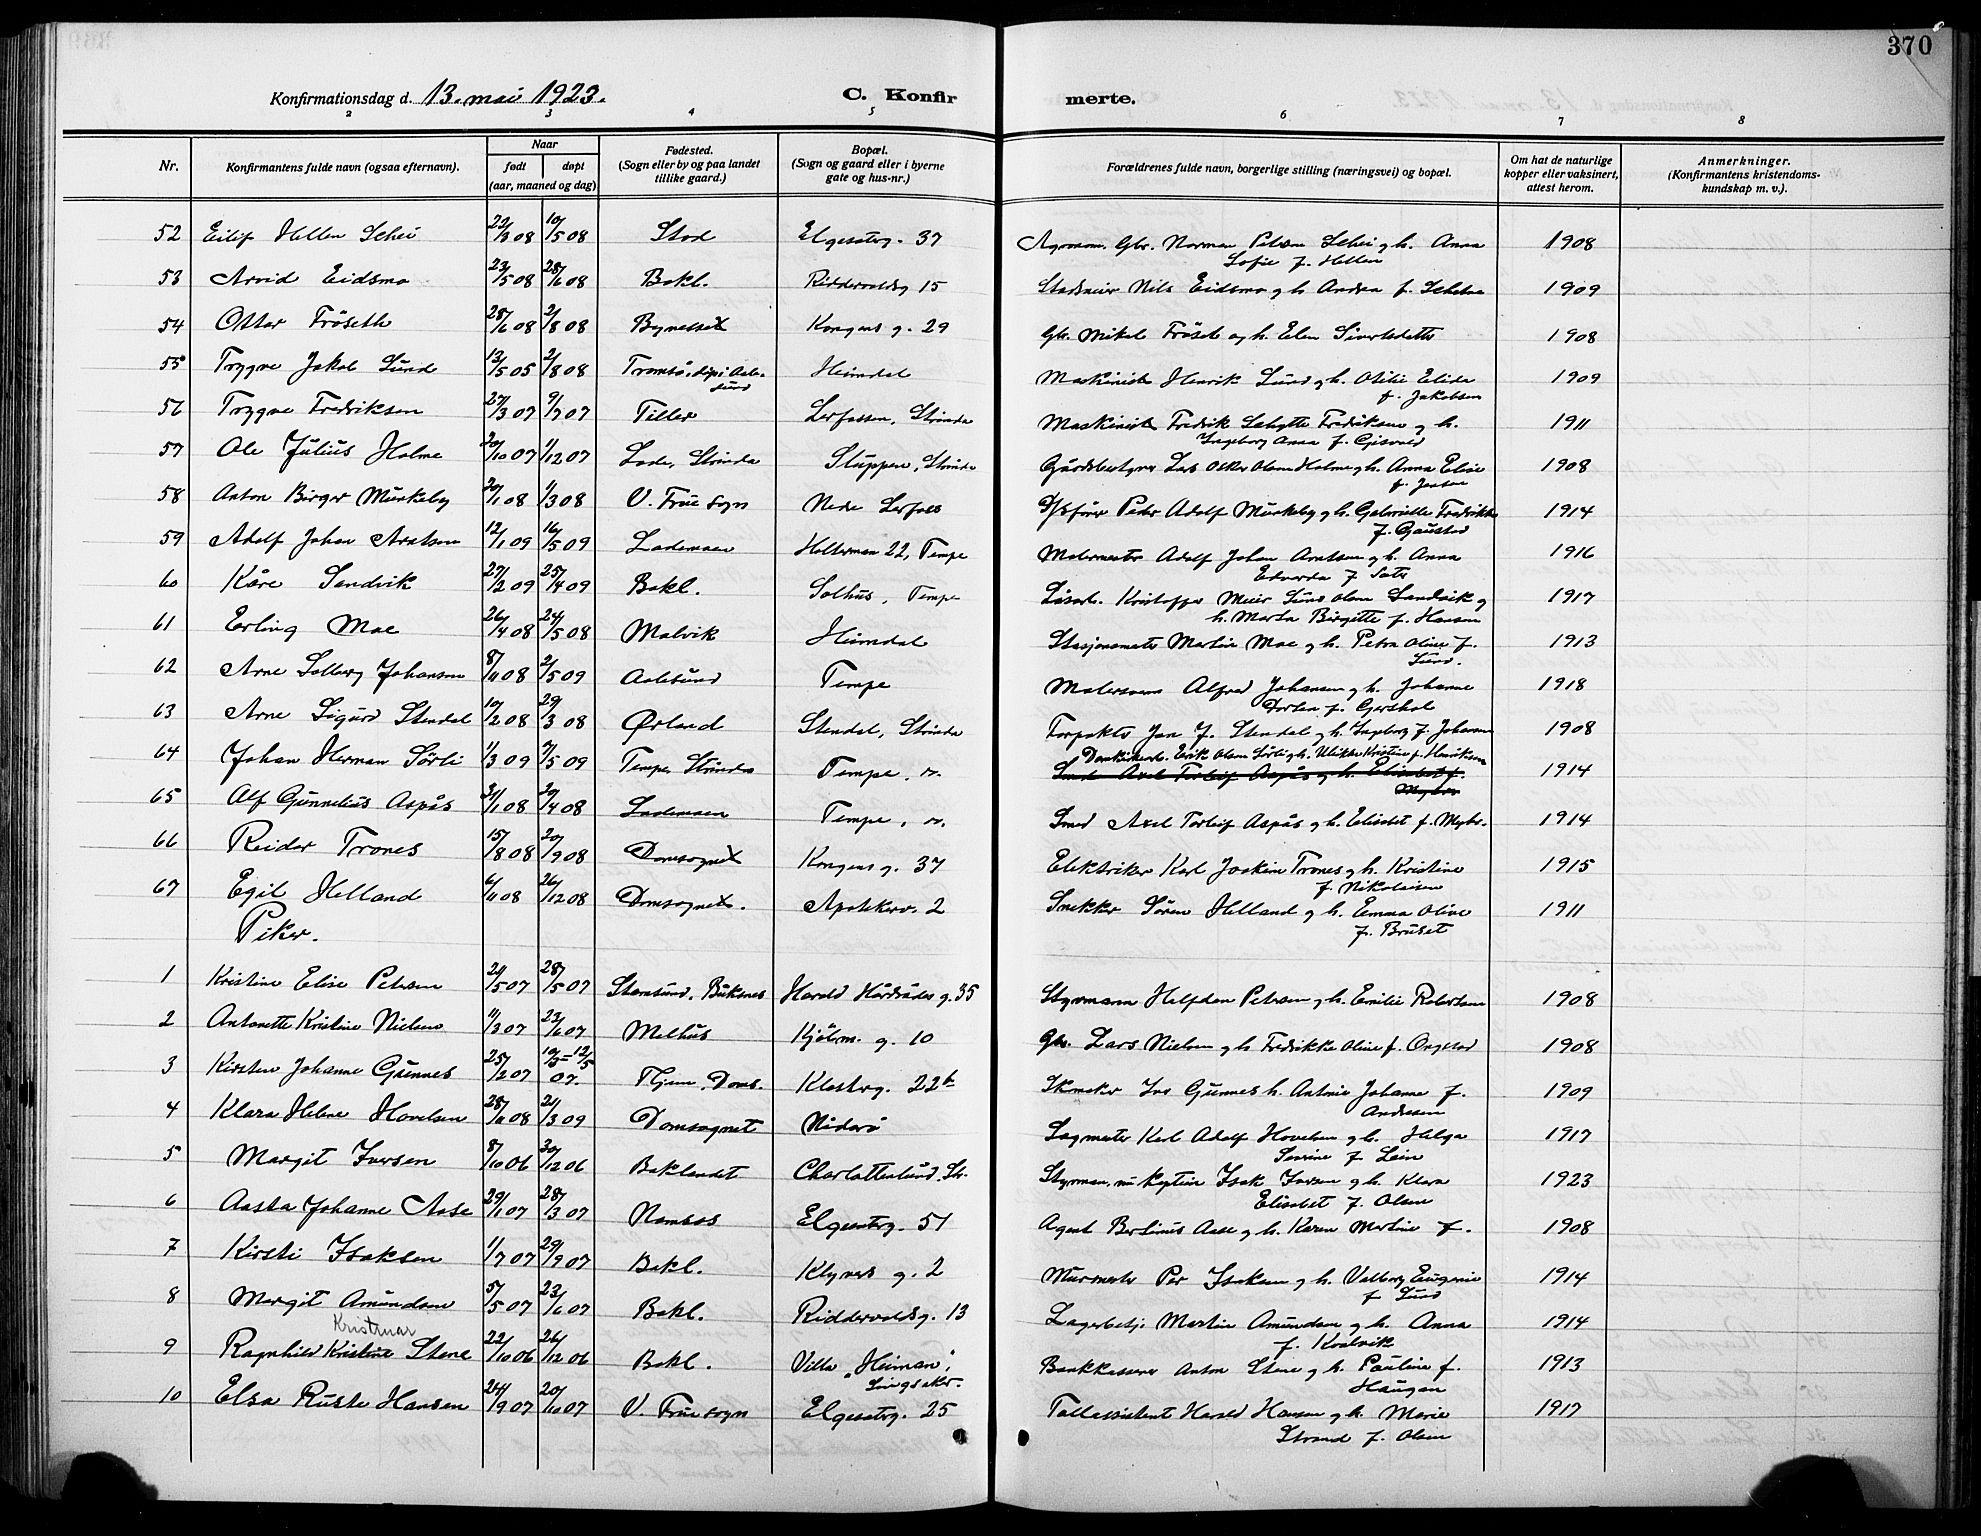 370
Konfirmationsdag d. 13. mai 1923. C. Konfirmerte.
2 3 4 5 6 7 8
Nr. Konfirmantens fulde navn (ogsaa efternavn). Naar født døpt (aar, maaned og dag) Fødested. (Sogn eller by og paa landet tillike gaard.) Bopæl. (Sogn og gaard eller i byerne gate og hus-nr.) Forældrenes fulde navn, borgerlige stilling (næringsvei) og bopæl. Om hat de naturlige kopper eller vaksinert, attest herom. Anmerkninger. (Konfirmantens kristendomskundskap m. v.).
52 Eilif Hellen Schei 23/3 08 10/5 08 Stod Elgesetrg. 37 Agronom. Gbr. Norman Petersen Schei g h. Anna 1908
Sofie f. Hellen
53 Arvid Eidsmo 23/5 08 28/6 08 Bakl. Riddervoldsg 15 Nils Eidsmo g h. Andrea f. 1909
54 Ottar Fröseth 28/6 08 2/8 08 Bynesset Kongens g. 29 Gbr. Mikal Fröset og h. Elen Sivertsdatter 1908
55 Trygve Jakob Lund 13/5 05 2/8 08 Tromsö, döpt i Aalesund Heimdal Maskinist Henrik Lund g h. Otilie Elida 1909
f. Jakobsen
56 Trygve Fredriksen 27/3 07 9/7 07 Tiller Lerfossen, Strinda Maskinist Fredrik Schytte Fredriksen g h. 1911
Ingeborg Anna f. Gisvold
57 Ole Julius Holme 20/10 07 1/12 07 Lade, Strinda Sluppen, Strinda Gårdsbestyrer Lars Oskar Olsen Holme g h. Anna Elise 1908
f. Jensen
58 Anton Birger Munkeby 20/1 08 1/3 08 V. Frue sogn Nedre Lerfoss Peder Adolf Munkeby g h. Gabrielle Fredrikke 1914
f. Gaustad
59 Adolf Johan Arntsen 12/1 09 16/5 09 Lademoen Holterman 22, Tempe Malermester Adolf Johan Arntsen g h. Anna 1916
Edvarda f. Sæter
60 Kåre Sandvik 27/2 09 25/4 09 Bakl. Solhus, Tempe Løsarb. Kristoffer Meier Lund Olsen Sandvik g 1917
h. Marta Birgitte f. Hansen
61 Erling Moe 26/4 08 24/5 08 Malvik Heimdal Stasjonsmester Martin Moe g h. Petra Oline f. 1913
Lund.
62 Arne Solberg Johansen 8/11 08 2/5 09 Aalesund Tempe Malersvenn Alfred Johansen g h. Johanne 1918
Dortea f. Gjershol
63 Arne Sigurd Stendal 10/2 08 29/3 08 Ørland Stendal, Strinda Forpakter Jon J. Stendal g h. Ingeborg f. Johansen 1908
64 Johan Herman Sörli 1/3 09 7/5 09 Tempe Strinda Tempe, Erik Olsen Sörli g h. Ulrikke Kristine f. Henriksen 1914
Smed Axel Torleif Aspås g h. Elisabet f.
Myhre
65 Alf Gunnelius Aspås 31/1 08 20/4 08 Lademoen Tempe, Smed Axel Torleif Aspås g h. Elisabet f. Myhr. 1914
66 Reidar Trones 15/8 08 20/9 08 Domsognet Kongens g. 37 Elektriker Karl Joakim Trones g h. Kristine 1915
f. Nikolaisen
67 Egil Helland 6/11 08 26/12 08 Domsognet. Apotekerv. 2 Snekker Sören Helland g h. Emma Olive 1911
f. Bruset
Piker.
1 Kristine Elise Petersen 21/5 07 28/5 07 Stamsund, Buksnes Harald Hårdrådes g. 35 Styrmann Halfdan Petersen g h. Emilie Robertsen 1908
2 Antonette Kristine Nielsen 11/3 07 23/6 07 Melhus Kjölm. g. 10 Gbr. Lars Nielsen g h Fredrikke Oline f. 1908
3 Kirsten Johanne Gunnes 25/2 07 10/3-12/5 07. Hjem. Doms. Klosterg. 22b Skomaker Ivs Gunnes h. Antonie Johanne f. 1909
Andresen
4 Klara Helene Hovelsen 28/11 08 21/3 09 Domsognet Nidarö Sagmester Karl Adolf Hovelsen g h. Helga 1917
Severine f. Lein
5 Margit Iversen 8/10 06 30/12 06 Baklandet Charlottenlund. Str. Styrman, nu kaptein Isak Iversen g h. Klara 1923
Elisabet f. Olsen
6 Aasta Johanne Aase 29/1 07 28/3 07 Namsos Elgesetrg. 51 Agent Bertinus Aase g h. Karen Martine f. 1908
7 Kirsti Isaksen 1/7 07 29/9 07 Bakl. Klyvers g. 2 Murmester Per Isaksen g h. Valborg Eugenie 1914
f. Lund
8 Margit Amundsen 5/5 07 23/6 07 Bakl. Riddervoldsg. 13 Lagerbetj. Martin Amundsen g h. Anna 1914
f. Kvalvik
Kristmar
9 Ragnhild Kristine Stene 22/10 06 26/12 06 Bakl. Villa „Heiman", Bankkasserer Anton Stene g h. Pauline f. 1913
Haugan
10 Elsa Ruste Hansen 24/9 07 20/10 07 V. Frue sogn Elgesetrg. 25 Tollassistent Harald Hansen g h. Marie 1917
Strand f. Olsen